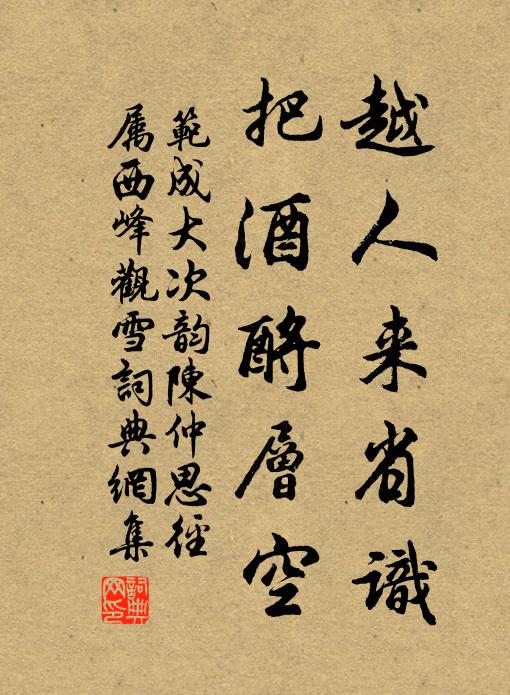 越人来省識
把酒酹層空
範成大次韵陳仲思徑
属西峰觀雪詞典網集
詞典網印